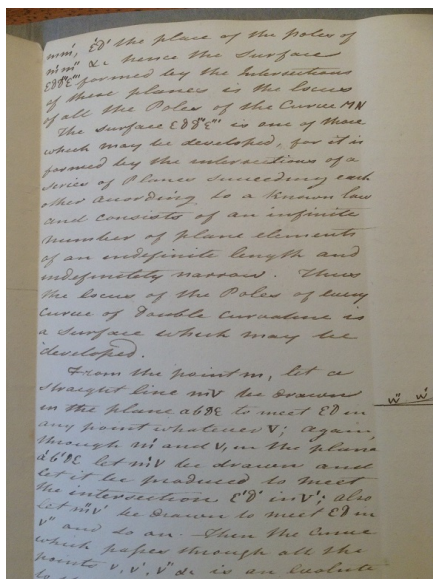 mm', ε'δ' the place of the Poles of
m'm" &c hence the Surface
εδδ'''ε''' formed by the Intersections
of these planes is the locus
of all the Poles of the Curve MN
The surface εδδ'''ε''' is one of those
which may be developed, for it is
formed by the intersections of a
series of Planes succeeding each
other acording to a known law
and consists of an infinite
number of plane elements
of an indefinite length and
indefinitely narrow. Thus
the locus of the Poles of every
Curve of Double Curvature is
a surface which may be
developed.
From the point m, let a
straight line mv be drawn
in the plane abδε to meet εδ in
any point whatever v; again,
through m' and v, in the plane
a'b'δ'ε' let m'v be drawn and
let it be produced to meet
the intersection ε'δ' in v'; also
let m"v' be drawn to meet εδ in
v" and so on. Then the Curve
which passes through all the
points v, v', v" &c is an evolute